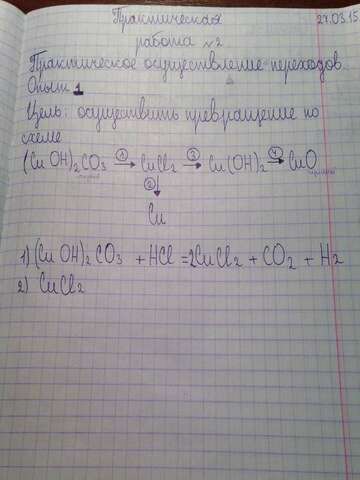 Практическая 27.03.15
работа №2
Практическое осуществление переходов.
Опыт 1
Цель: осуществить превращение по
схеме
(CuOH)₂CO₃ →① CuCl₂ →③ Cu(OH)₂ →④ CuO
↓②
Cu
1) (CuOH)₂CO₃ + HCl = 2CuCl₂ + CO₂ + H₂
2) CuCl₂